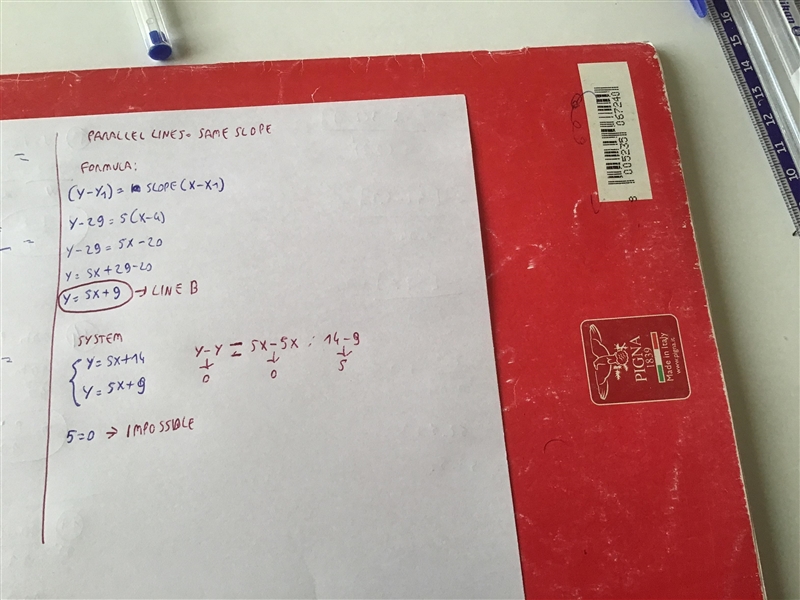 PARALLEL LINES = SAME SLOPE
FORMULA:
(Y-Y1) = SLOPE (X-X1)
Y-29 = 5(X-4)
Y-29 = 5X-20
Y = 5X+29-20
Y = 5X+9 → LINE B
SYSTEM
Y = 5X+14
Y = 5X+9
Y-Y = 5X-5X ; 14-9
0 0 5
5=0 → IMPOSSIBLE
=
=
=
8 005235 067240
PIGNA
1839
Made in Italy
www.pigna.it
16
15
14
13
12
11
10